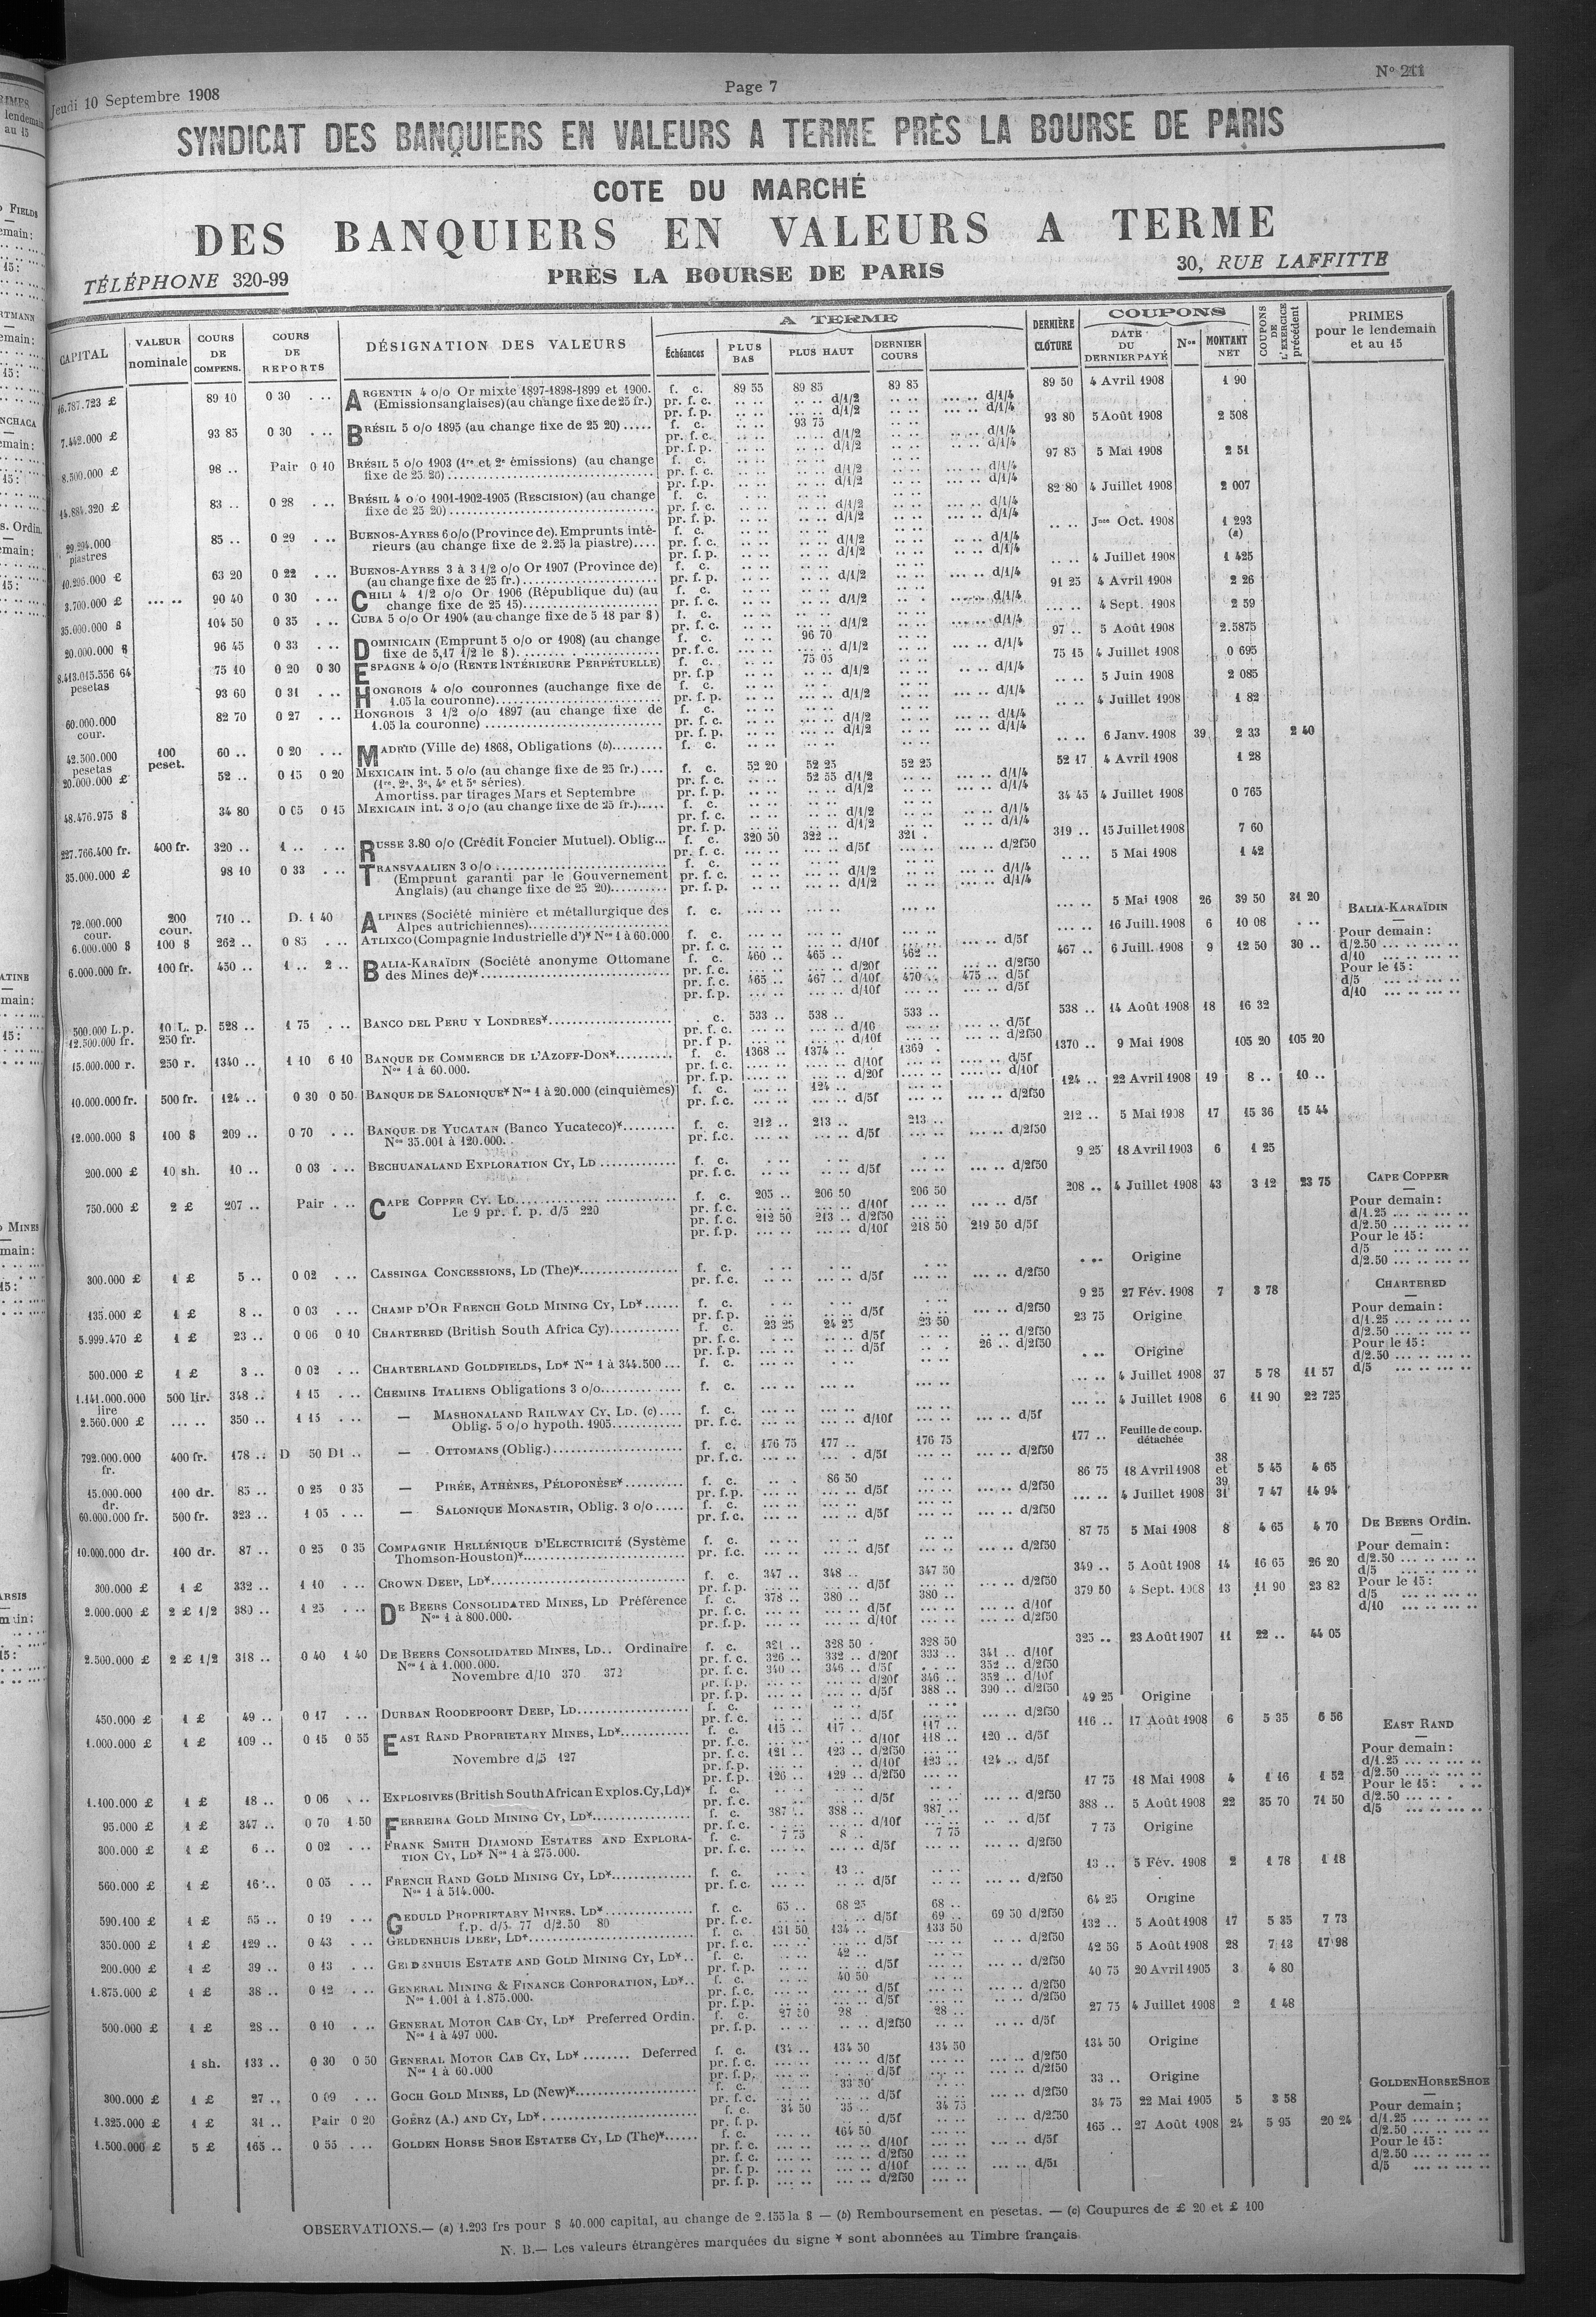 Jeudi 10 Septembre 1908
Page 7
N° 211
SYNDICAT DES BANQUIERS EN VALEURS A TERME PRÈS LA BOURSE DE PARIS
COTE DU MARCHÉ
DES BANQUIERS EN VALEURS A TERME
TÉLÉPHONE 320-99
PRÈS LA BOURSE DE PARIS
30, RUE LAFFITTE
CAPITAL
VALEUR nominale
COURS DE COMPENS.
COURS DE REPORTS
DÉSIGNATION DES VALEURS
A TERME
Échéances
PLUS BAS
PLUS HAUT
DERNIER COURS
DERNIÈRE CLÔTURE
COUPONS
DATE DU DERNIER PAYÉ
Nos
MONTANT NET
COUPONS DE L'EXERCICE précédent
PRIMES pour le lendemain et au 15
16.787.723 £ 89 10 0 30 ARGENTIN 4 o/o Or mixte 1897-1898-1899 et 1900. f. c. 89 55 89 85 89 85 89 50 4 Avril 1908 1 90
(Emissions anglaises) (au change fixe de 25 fr.)
7.442.000 £ 93 85 0 30 BRÉSIL 5 o/o 1895 (au change fixe de 25 20) f. c. 93 75 93 80 5 Août 1908 2 508
8.500.000 £ 98 .. Pair 0 10 BRÉSIL 5 o/o 1903 (1re et 2e émissions) (au change f. c. 97 85 5 Mai 1908 2 51
fixe de 25 20)
14.884.320 £ 83 .. 0 28 BRÉSIL 4 o/o 1901-1902-1905 (Rescision) (au change f. c. 82 80 4 Juillet 1908 2 007
fixe de 25 20)
29.294.000 piastres 85 .. 0 29 BUENOS-AYRES 6 o/o (Province de). Emprunts inté- f. c. Jnce Oct. 1908 1 293 (a)
rieurs (au change fixe de 2.25 la piastre)
10.296.000 £ 63 20 0 22 BUENOS-AYRES 3 à 3 1/2 o/o Or 1907 (Province de) f. c. 4 Juillet 1908 1 425
(au change fixe de 25 fr.)
3.700.000 £ 90 40 0 30 CHILI 4 1/2 o/o Or 1906 (République du) (au f. c. 91 25 4 Avril 1908 2 26
change fixe de 25 15)
35.000.000 $ 104 50 0 35 CUBA 5 o/o Or 1904 (au change fixe de 5 18 par $) f. c. 4 Sept. 1908 2 59
20.000.000 $ 96 45 0 33 DOMINICAIN (Emprunt 5 o/o or 1908) (au change f. c. 96 70 97 .. 5 Août 1908 2.5875
fixe de 5,17 1/2 le $)
8.413.015.556 64 pesetas 75 10 0 20 0 30 ESPAGNE 4 o/o (RENTE INTÉRIEURE PERPÉTUELLE) f. c. 75 05 75 15 4 Juillet 1908 0 695
93 60 0 31 HONGROIS 4 o/o couronnes (au change fixe de f. c. 5 Juin 1908 2 085
1.05 la couronne)
60.000.000 cour. 82 70 0 27 HONGROIS 3 1/2 o/o 1897 (au change fixe de f. c. 4 Juillet 1908 1 82
1.05 la couronne)
42.500.000 pesetas 100 peset. 60 .. 0 20 MADRID (Ville de) 1868, Obligations (b) f. c. 6 Janv. 1908 39 2 33 2 40
20.000.000 £ 52 .. 0 15 0 20 MEXICAIN int. 5 o/o (au change fixe de 25 fr.) f. c. 52 20 52 25 52 25 52 17 4 Avril 1908 1 28
(1re, 2e, 3e, 4e et 5e séries) pr. f. c. 52 55 d/1/2
Amortiss. par tirages Mars et Septembre
48.476.975 $ 34 80 0 05 0 15 MEXICAIN int. 3 o/o (au change fixe de 25 fr.) f. c. 34 45 4 Juillet 1908 0 765
227.766.400 fr. 400 fr. 320 .. 1 .. RUSSE 3.80 o/o (Crédit Foncier Mutuel). Oblig. f. c. 320 50 322 .. 321 . 319 .. 15 Juillet 1908 7 60
35.000.000 £ 98 10 0 33 TRANSVAALIEN 3 o/o f. c. 5 Mai 1908 1 42
(Emprunt garanti par le Gouvernement
Anglais) (au change fixe de 25 20)
72.000.000 cour. 200 cour. 710 .. D. 1 40 ALPINES (Société minière et métallurgique des f. c. 5 Mai 1908 26 39 50 31 20
Alpes autrichiennes)
6.000.000 $ 100 $ 262 .. 0 85 ATLIXCO (Compagnie Industrielle d')* Nos 1 à 60.000 f. c. 16 Juill. 1908 6 10 08
6.000.000 fr. 100 fr. 450 .. 1 .. 2 .. BALIA-KARAÏDIN (Société anonyme Ottomane f. c. 460 .. 465 .. 462 .. 467 .. 6 Juill. 1908 9 12 50 30 ..
des Mines de)* pr. f. c. 465 .. 467 .. d/10f 470 .. 475 .. d/5f
BALIA-KARAÏDIN
Pour demain:
d/2.50
d/10
Pour le 15:
d/5
d/10
500.000 L.p. 10 L. p. 528 .. 1 75 BANCO DEL PERU Y LONDRES* c. 533 .. 538 .. 533 .. 538 .. 14 Août 1908 18 16 32
12.500.000 fr. 250 fr.
15.000.000 r. 250 r. 1340 .. 1 10 6 10 BANQUE DE COMMERCE DE L'AZOFF-DON* f. c. 1368 .. 1374 .. 1369 . 1370 .. 9 Mai 1908 105 20 105 20
Nos 1 à 60.000.
10.000.000 fr. 500 fr. 124 .. 0 30 0 50 BANQUE DE SALONIQUE* Nos 1 à 20.000 (cinquièmes) f. c. 124 .. 124 .. 22 Avril 1908 19 8 .. 10 ..
12.000.000 $ 100 $ 209 .. 0 70 BANQUE DE YUCATAN (Banco Yucateco)* f. c. 212 .. 213 .. 213 .. 212 .. 5 Mai 1908 17 15 36 15 44
Nos 35.001 à 120.000.
200.000 £ 10 sh. 10 .. 0 03 BECHUANALAND EXPLORATION CY, LD f. c. 9 25 18 Avril 1903 6 1 25
750.000 £ 2 £ 207 .. Pair CAPE COPPER CY. LD f. c. 205 .. 206 50 206 50 208 .. 4 Juillet 1908 43 3 12 23 75
Le 9 pr. f. p. d/5 220
pr. f. c. 212 50 213 .. d/2f50
pr. f. p. d/10f 218 50 219 50 d/5f
CAPE COPPER
Pour demain:
d/1.25
d/2.50
Pour le 15:
d/5
d/2.50
300.000 £ 1 £ 5 .. 0 02 CASSINGA CONCESSIONS, LD (The)* f. c. Origine
135.000 £ 1 £ 8 .. 0 03 CHAMP D'OR FRENCH GOLD MINING CY, LD* f. c. 9 25 27 Fév. 1908 7 3 78
5.999.470 £ 1 £ 23 .. 0 06 0 10 CHARTERED (British South Africa Cy) f. c. 23 25 24 25 23 50 23 75 Origine
pr. f. p. d/5f 26 .. d/2f50
CHARTERED
Pour demain:
d/1.25
d/2.50
Pour le 15:
d/2.50
d/5
500.000 £ 1 £ 3 .. 0 02 CHARTERLAND GOLDFIELDS, LD* Nos 1 à 344.500 f. c. Origine
1.141.000.000 lire 500 lir. 348 .. 1 15 CHEMINS ITALIENS Obligations 3 o/o f. c. 4 Juillet 1908 37 5 78 11 57
2.560.000 £ 350 .. 1 15 — MASHONALAND RAILWAY CY, LD. (c) f. c. 4 Juillet 1908 6 11 90 22 725
Oblig. 5 o/o hypoth. 1905
792.000.000 fr. 400 fr. 178 .. D 50 D1 .. — OTTOMANS (Oblig.) f. c. 176 75 177 .. 176 75 177 .. Feuille de coup. détachée
15.000.000 dr. 100 dr. 85 .. 0 25 0 35 — PIRÉE, ATHÈNES, PÉLOPONÈSE* f. c. 86 50 86 75 18 Avril 1908 38 et 39 5 45 4 65
60.000.000 fr. 500 fr. 323 .. 1 05 — SALONIQUE MONASTIR, Oblig. 3 o/o f. c. 4 Juillet 1908 31 7 47 14 94
10.000.000 dr. 100 dr. 87 .. 0 25 0 35 COMPAGNIE HELLÉNIQUE D'ELECTRICITÉ (Système f. c. 87 75 5 Mai 1908 8 4 65 4 70
Thomson-Houston)*
300.000 £ 1 £ 332 .. 1 10 CROWN DEEP, LD* f. c. 347 .. 348 .. 347 50 349 .. 5 Août 1908 14 16 65 26 20
2.000.000 £ 2 £ 1/2 380 .. 1 25 DE BEERS CONSOLIDATED MINES, LD Préférence f. c. 378 .. 380 .. 380 .. 379 50 4 Sept. 1908 13 11 90 23 82
Nos 1 à 800.000.
DE BEERS Ordin.
Pour demain:
d/2.50
d/5
Pour le 15:
d/5
d/10
2.500.000 £ 2 £ 1/2 318 .. 0 40 1 40 DE BEERS CONSOLIDATED MINES, LD.. Ordinaire f. c. 321 .. 328 50 328 50 325 .. 23 Août 1907 11 22 .. 44 05
Nos 1 à 1.000.000. pr. f. c. 326 .. 332 .. d/20f 333 .. 341 .. d/10f
Novembre d/10 370 372 pr. f. c. 340 .. 346 .. d/5f 352 .. d/2f50
pr. f. p. d/20f 346 .. 352 .. d/10f
pr. f. p. d/5f 388 .. 390 .. d/2f50
450.000 £ 1 £ 49 .. 0 17 DURBAN ROODEPOORT DEEP, LD f. c. 49 25 Origine
1.000.000 £ 1 £ 109 .. 0 15 0 55 EAST RAND PROPRIETARY MINES, LD* f. c. 115 .. 117 .. 117 .. 116 .. 17 Août 1908 6 5 35 6 56
pr. f. c. d/10f 118 .. 120 .. d/5f
Novembre d/5 127 pr. f. c. 121 .. 123 .. d/2f50
pr. f. p. d/10f 123 .. 124 .. d/5f
pr. f. p. 126 .. 129 .. d/2f50
EAST RAND
Pour demain:
d/1.25
d/2.50
Pour le 15:
d/2.50
d/5
1.100.000 £ 1 £ 18 .. 0 06 EXPLOSIVES (British South African Explos. Cy, Ld)* f. c. 17 75 18 Mai 1908 4 1 16 1 52
95.000 £ 1 £ 347 .. 0 70 1 50 FERREIRA GOLD MINING CY, LD* f. c. 387 .. 388 .. 387 .. 388 .. 5 Août 1908 22 35 70 71 50
300.000 £ 1 £ 6 .. 0 02 FRANK SMITH DIAMOND ESTATES AND EXPLORA- f. c. 7 75 8 .. 7 75 7 75 Origine
TION CY, LD* Nos 1 à 275.000.
560.000 £ 1 £ 16 .. 0 05 FRENCH RAND GOLD MINING CY, LD* f. c. 13 .. 13 .. 5 Fév. 1908 2 1 78 1 18
Nos 1 à 514.000.
590.100 £ 1 £ 55 .. 0 19 GEDULD PROPRIETARY MINES, LD* f. c. 65 .. 68 25 68 .. 64 25 Origine
f.p. d/5 77 d/2.50 80 pr. f. c. d/5f 69 .. 69 50 d/2f50
350.000 £ 1 £ 129 .. 0 43 GELDENHUIS DEEP, LD* f. c. 131 50 134 .. 133 50 132 .. 5 Août 1908 17 5 35 7 73
200.000 £ 1 £ 39 .. 0 13 GELDENHUIS ESTATE AND GOLD MINING CY, LD* f. c. 42 .. 42 50 5 Août 1908 28 7 13 17 98
1.875.000 £ 1 £ 38 .. 0 12 GENERAL MINING & FINANCE CORPORATION, LD* f. c. 40 50 40 75 20 Avril 1905 3 4 80
Nos 1.001 à 1.875.000.
500.000 £ 1 £ 28 .. 0 10 GENERAL MOTOR CAB CY, LD* Preferred Ordin. f. c. 27 50 28 28 .. 27 75 4 Juillet 1908 2 1 48
Nos 1 à 497 000.
1 sh. 133 .. 0 30 0 50 GENERAL MOTOR CAB CY, LD* Deferred f. c. 134 .. 134 50 134 50 134 50 Origine
Nos 1 à 60.000
300.000 £ 1 £ 27 .. 0 09 GOCH GOLD MINES, LD (New)* f. c. 33 50 33 .. Origine
1.325.000 £ 1 £ 31 .. Pair 0 20 GOERZ (A.) AND CY, LD* f. c. 34 50 35 .. 34 75 34 75 22 Mai 1905 5 3 58
1.500.000 £ 5 £ 165 .. 0 55 GOLDEN HORSE SHOE ESTATES CY, LD (The)* f. c. 164 50 165 .. 27 Août 1908 24 5 95 20 24
GOLDEN HORSE SHOE
Pour demain;
d/1.25
d/2.50
Pour le 15:
d/2.50
d/5
OBSERVATIONS.— (a) 1.293 frs pour $ 40.000 capital, au change de 2.155 la $ — (b) Remboursement en pesetas. — (c) Coupures de £ 20 et £ 100
N. B.— Les valeurs étrangères marquées du signe * sont abonnées au Timbre français